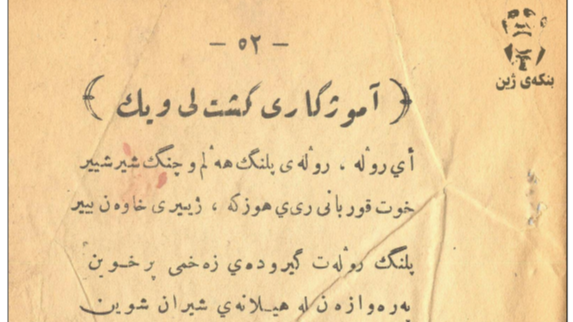 - ٥٢ -
بنکەی ژین
( آموژگاری گشت لی ویك )
أي روٚله ، روٚله ی پلنگ هه لٚم و چنگ شیر شییر
خوت قوربانی ری‌ي هوز که ، ژییری خاوەن بییر
پلنگ روٚله‌ت گیروده‌ي زه‌خمی پر خوین
به‌ره‌وازه‌ن له هیلانه‌ي شیران شوین